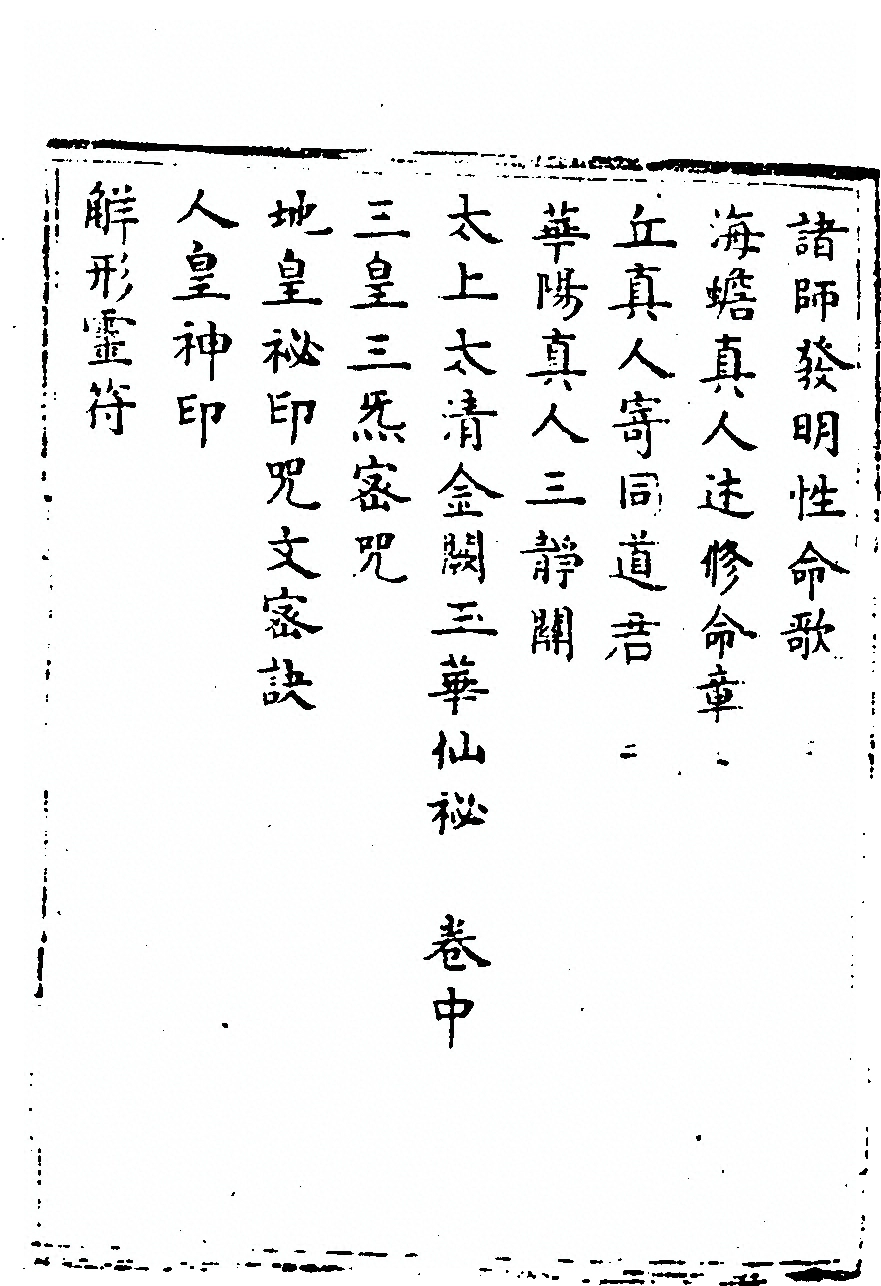 諸師發明性命歌
海蟾真人述修命章
丘真人寄同道君
華陽真人三靜關
太上太清金闕玉華仙祕 卷中
三皇三炁密咒
地皇祕印咒文密訣
人皇神印
解形靈符